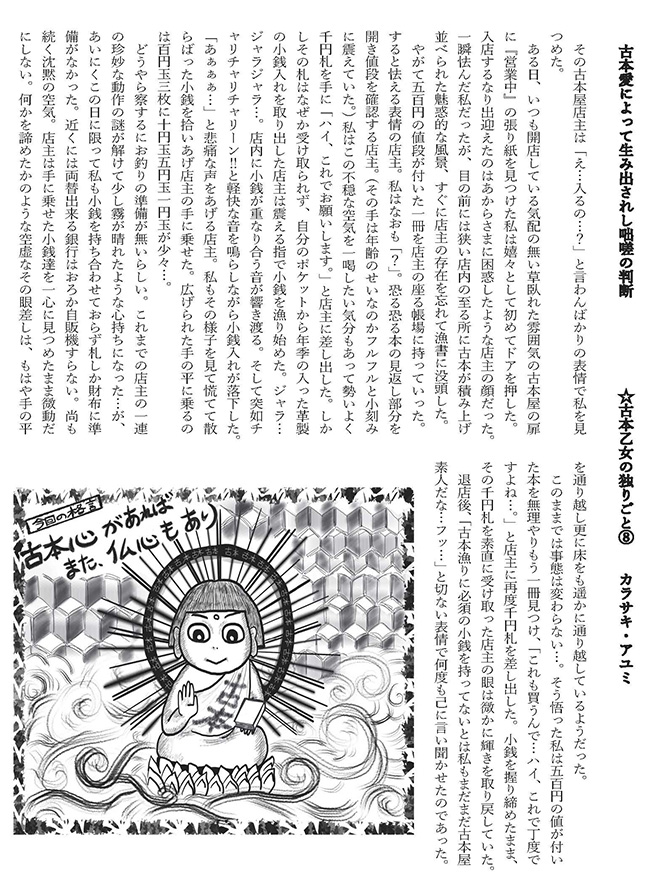 古本愛によって生み出されし咄嗟の判断
☆古本乙女の独りごと⑧
カラサキ・アユミ
その古本屋店主は「え…入るの…？」と言わんばかりの表情で私を見
つめた。
ある日、いつも開店している気配の無い草臥れた雰囲気の古本屋の扉
に『営業中』の張り紙を見つけた私は嬉々として初めてドアを押した。
入店するなり出迎えたのはあからさまに困惑したような店主の顔だった。
一瞬怯んだ私だったが、目の前には狭い店内の至る所に古本が積み上げ
並べられた魅惑的な風景、すぐに店主の存在を忘れて漁書に没頭した。
やがて五百円の値段が付いた一冊を店主の座る帳場に持っていった。
すると怯える表情の店主。私はなおも「？」。恐る恐る本の見返し部分を
開き値段を確認する店主。（その手は年齢のせいなのかフルフルと小刻み
に震えていた。）私はこの不穏な空気を一喝したい気分もあって勢いよく
千円札を手に「ハイ、これでお願いします。」と店主に差し出した。しか
しその札はなぜか受け取られず、自分のポケットから年季の入った革製
の小銭入れを取り出した店主は震える指で小銭を漁り始めた。ジャラ…
ジャラジャラ…。店内に小銭が重なり合う音が響き渡る。そして突如チ
ャリチャリチャリーン!!と軽快な音を鳴らしながら小銭入れが落下した。
「あぁぁぁ…」と悲痛な声をあげる店主。私もその様子を見て慌てて散
らばった小銭を拾いあげ店主の手に乗せた。広げられた手の平に乗るの
は百円玉三枚に十円玉五円玉一円玉が少々…。
どうやら察するにお釣りの準備が無いらしい。これまでの店主の一連
の珍妙な動作の謎が解けて少し霧が晴れたような心持ちになった…が、
あいにくこの日に限って私も小銭を持ち合わせておらず札しか財布に準
備がなかった。近くには両替出来る銀行はおろか自販機すらない。尚も
続く沈黙の空気。店主は手に乗せた小銭達を一心に見つめたまま微動だ
にしない。何かを諦めたかのような空虚なその眼差しは、もはや手の平
を通り越し更に床をも遥かに通り越しているようだった。
このままでは事態は変わらない…。そう悟った私は五百円の値が付い
た本を無理やりもう一冊見つけ、「これも買うんで…ハイ、これで丁度で
すよね…。」と店主に再度千円札を差し出した。小銭を握り締めたまま、
その千円札を素直に受け取った店主の眼は微かに輝きを取り戻していた。
退店後、「古本漁りに必須の小銭を持ってないとは私もまだまだ古本屋
素人だな…フッ…」と切ない表情で何度も己に言い聞かせたのであった。
今日の格言
古本心があれば
また、仏心もあり